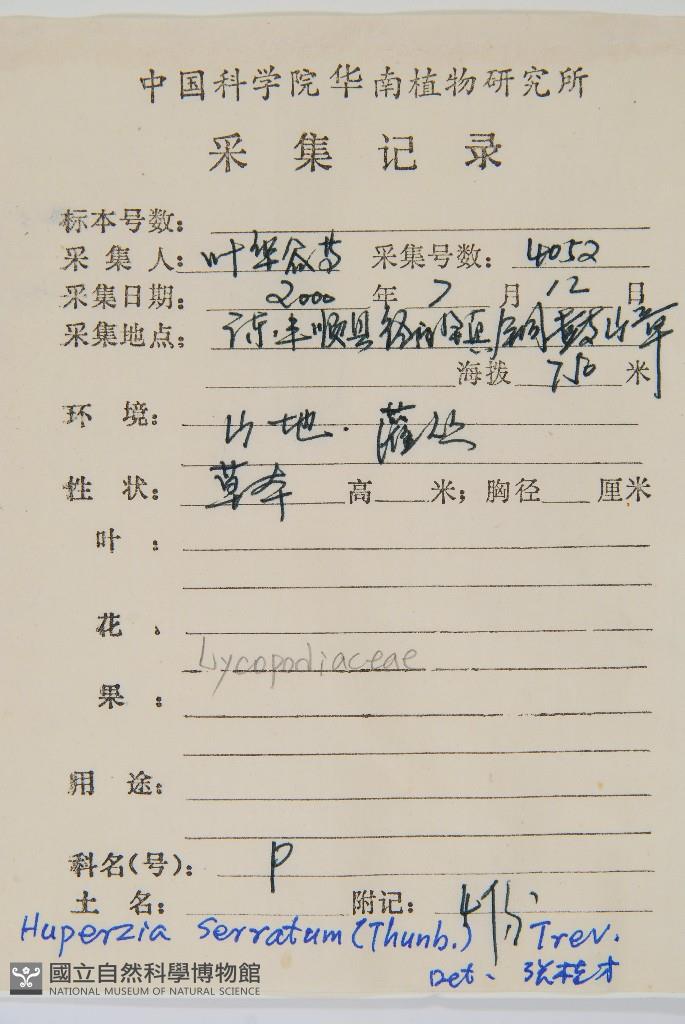 中国科学院华南植物研究所
采集记录
标本号数:
采集人: 叶华谷等 采集号数: 4052
采集日期: 2000 年 7 月 12 日
采集地点: 丰顺县 镇 铜鼓山
海拨 750 米
环境: 山地. 灌丛
性状: 草本 高 米; 胸径 厘米
叶:
花:
Lycopodiaceae
果:
用途:
科名(号): P
土名: 附记: 4份
Huperzia serratum (Thunb.) Trev.
Det. 张桂才
國立自然科學博物館
NATIONAL MUSEUM OF NATURAL SCIENCE